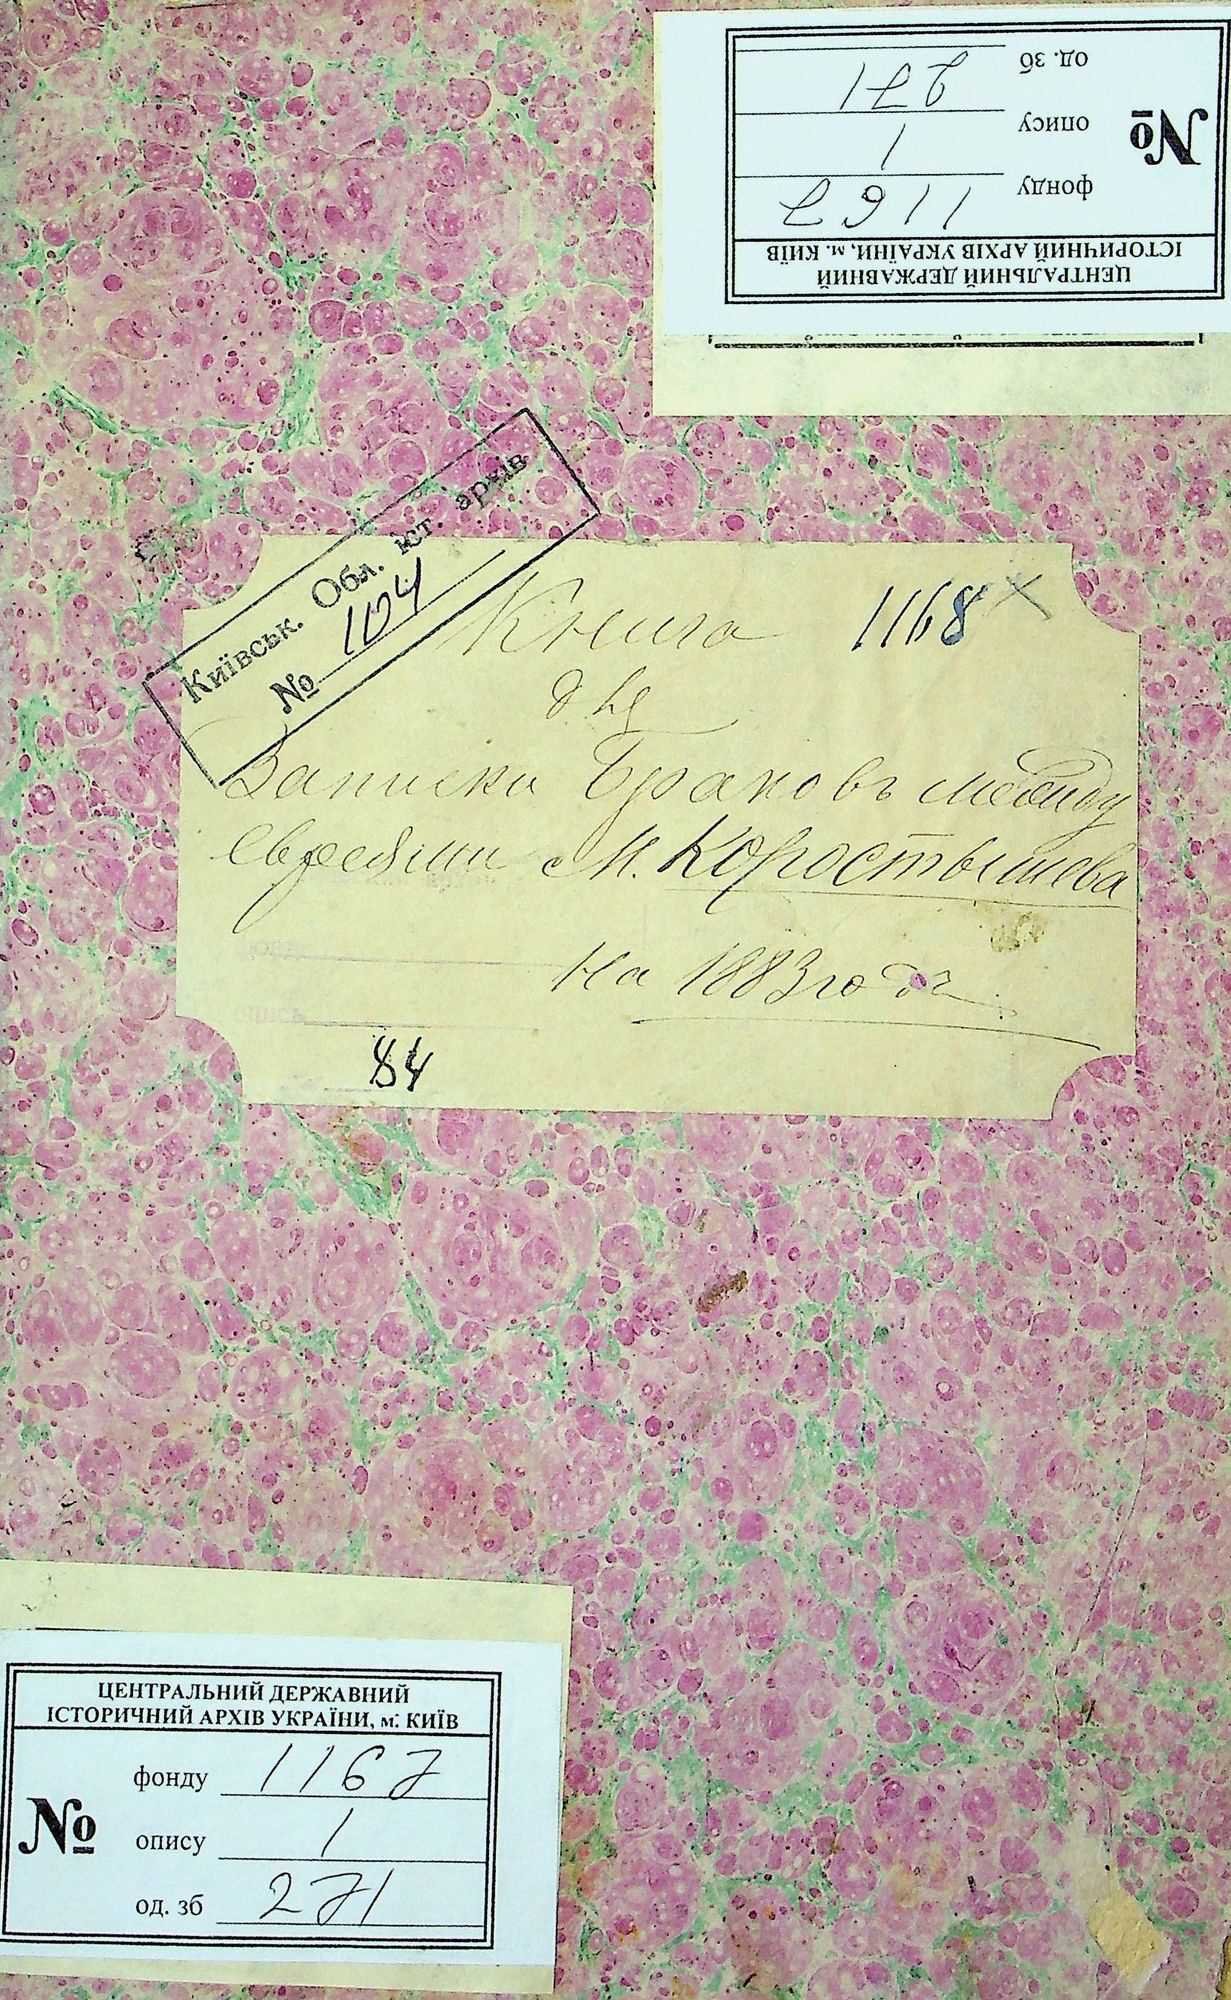 ЦЕНТРАЛЬНИЙ ДЕРЖАВНИЙ
ІСТОРИЧНИЙ АРХІВ УКРАЇНИ, м. КИЇВ
№
фонду 1167
опису 1
од. зб 271
Київськ. Обл. іст. архів
№ 104
Книга 1168
для
Записки Браковъ между
евреями м. Коростышева
на 1883 годъ
84
ЦЕНТРАЛЬНИЙ ДЕРЖАВНИЙ
ІСТОРИЧНИЙ АРХІВ УКРАЇНИ, м. КИЇВ
№
фонду 1167
опису 1
од. зб 271